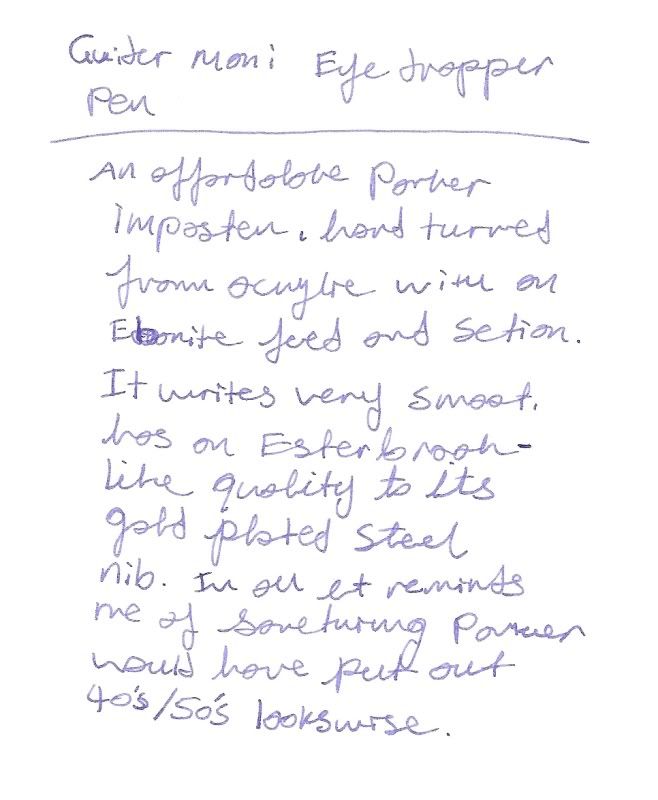 Guider moni Eye dropper
Pen
An affordable Parker
imposter. hand turned
from acrylic with an
Ebonite feed and Setion.
It writes very smoot.
has an Esterbrook-
like quality to its
gold plated Steel
nib. In all it reminds
me of something Parker
would have put out
40's/50's lookswise.